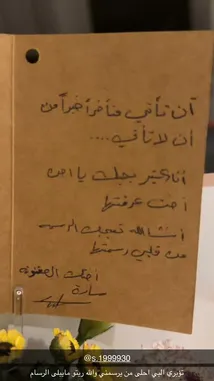 أن تأتي متأخراً خيراً من
أن لا تأتي ....
أنا كتير بحبك يا احن
أخت عرفتها
أنشالله تعجبك الرسمة
من قلبي رسمتها
أختك الصغيرة
@s.1999930
تؤبري البي احلى من يرسمني والله ريتو مايبلى الرسام